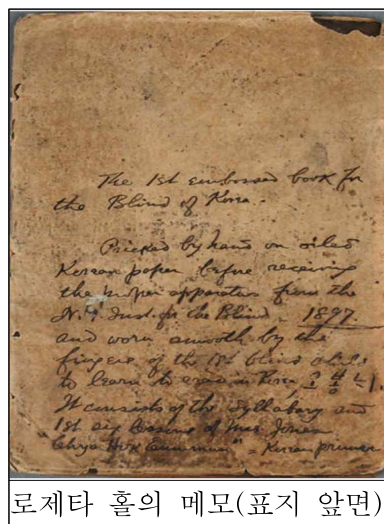 The 1st embossed book for
the Blind of Korea.
Pricked by hand on oiled
Korean paper before receiving
the proper apparatus from the
N.Y. Inst. for the Blind - 1897
and worn smooth by the
fingers of the 1st blind child
to learn to read in Korea,
It consists of the Syllabary and
1st six lessons of Mrs Jones
Korean primer
로제타 홀의 메모(표지 앞면)